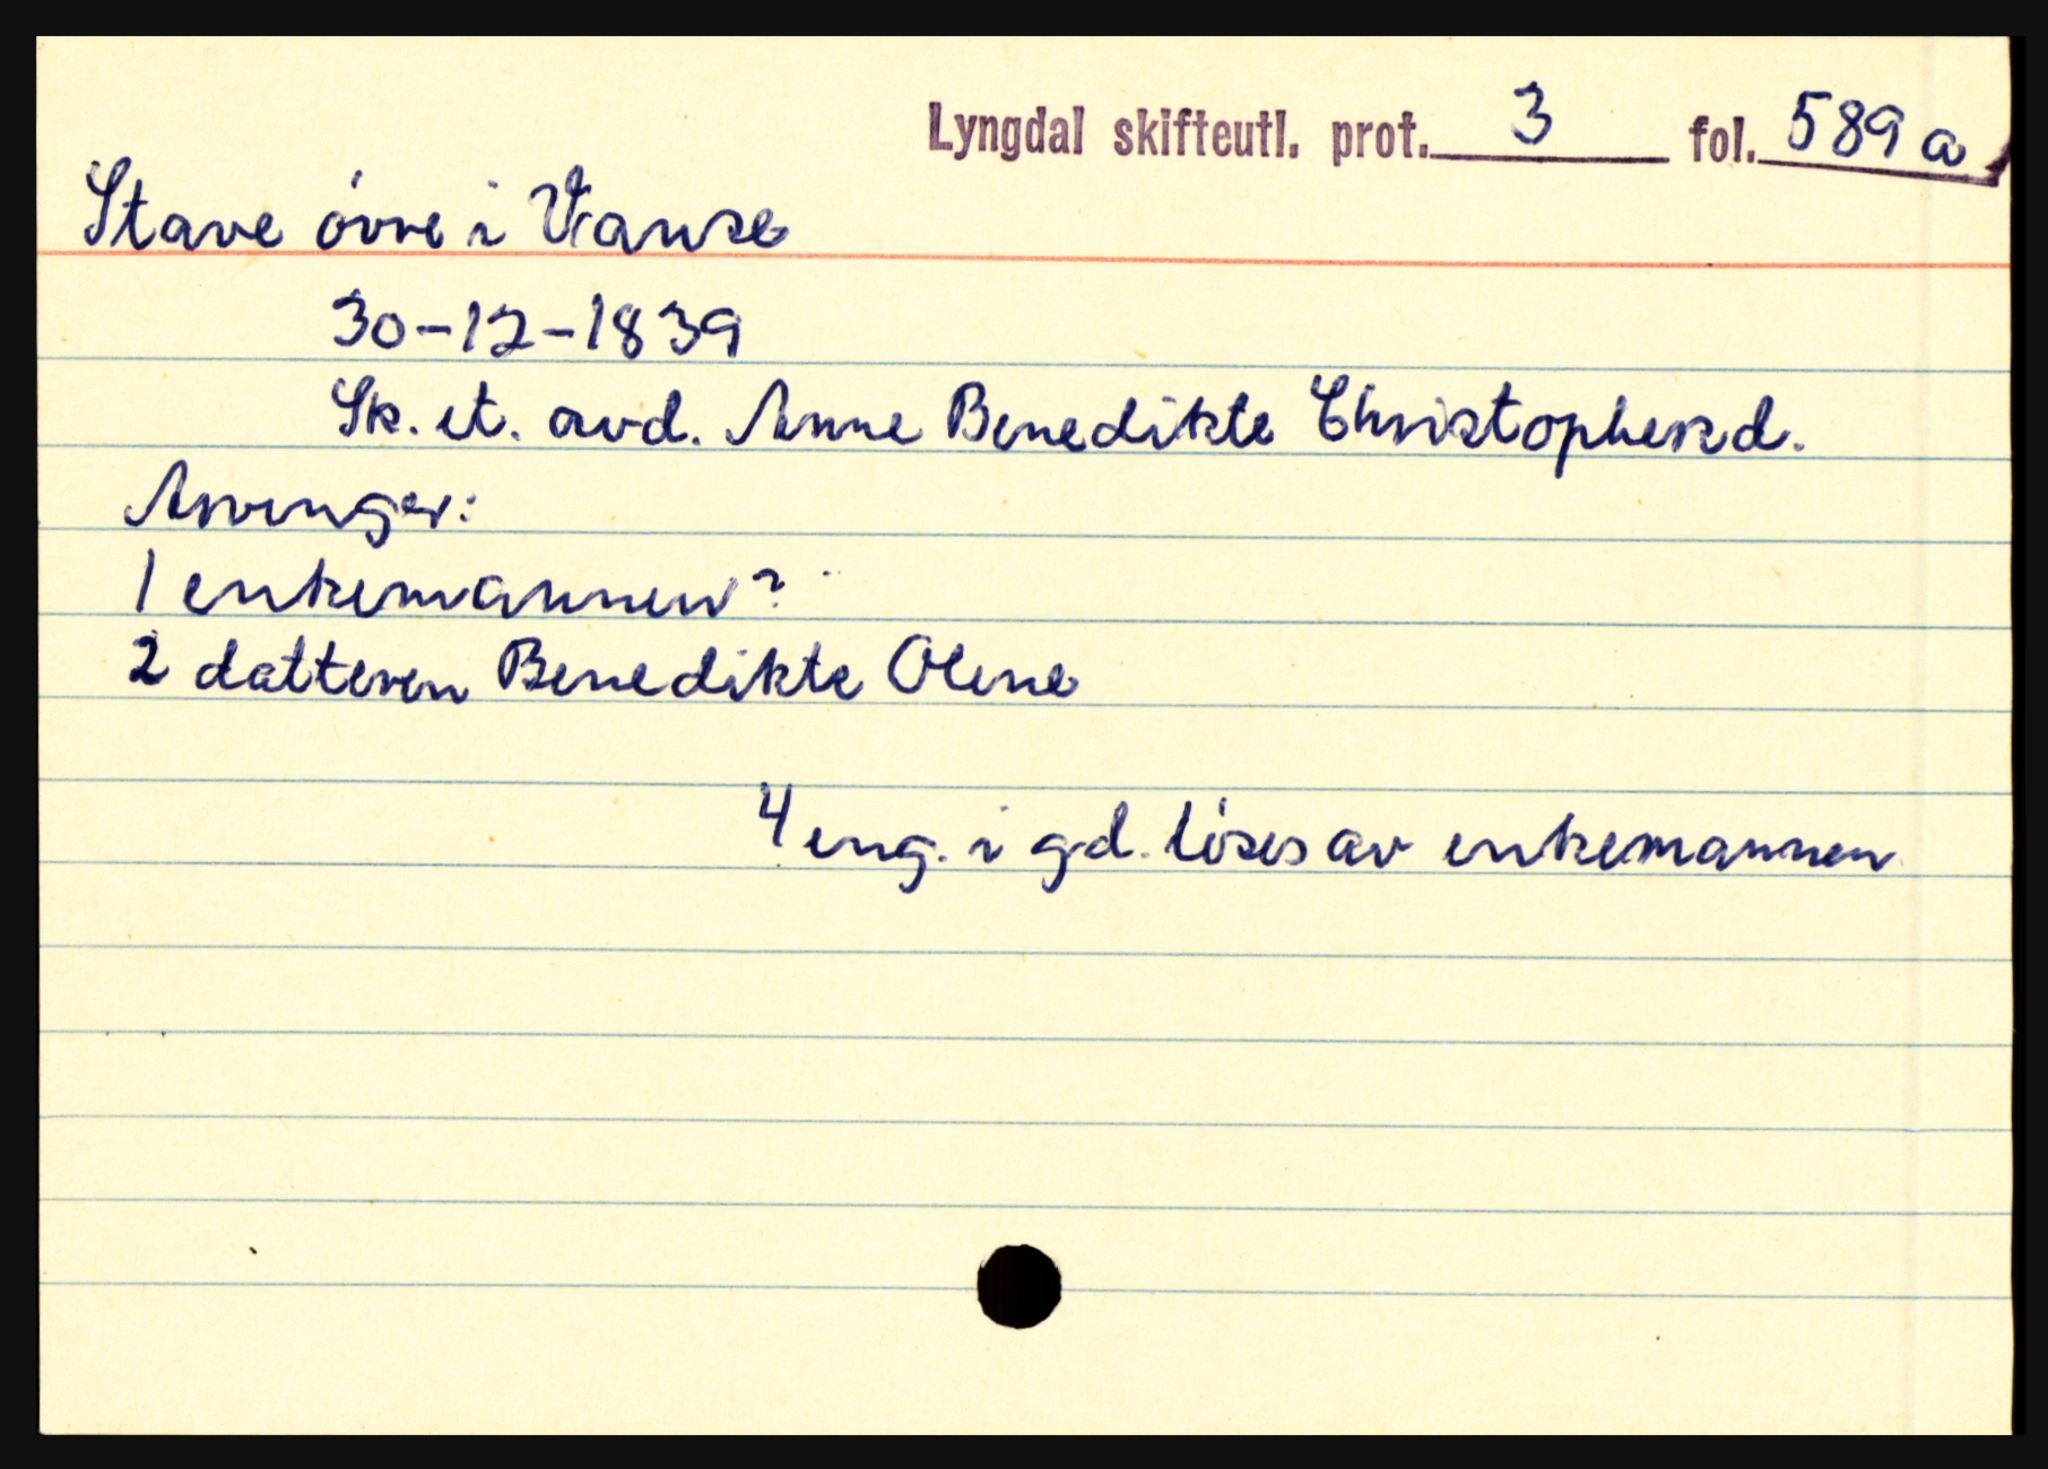 Lyngdal skifteutl. prot. 3 fol. 589 a
Stave óvre i Vanse
30-12-1839
Sk. et. avd. Anne Benedikte Christophersd.
Arvinger:
1 enkemannen?
2 datteren Benedikte Olene
4 eng. i gd. löses av enkemannen